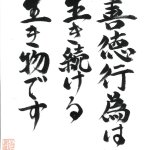 善徳行為は
生き続ける
生き物です